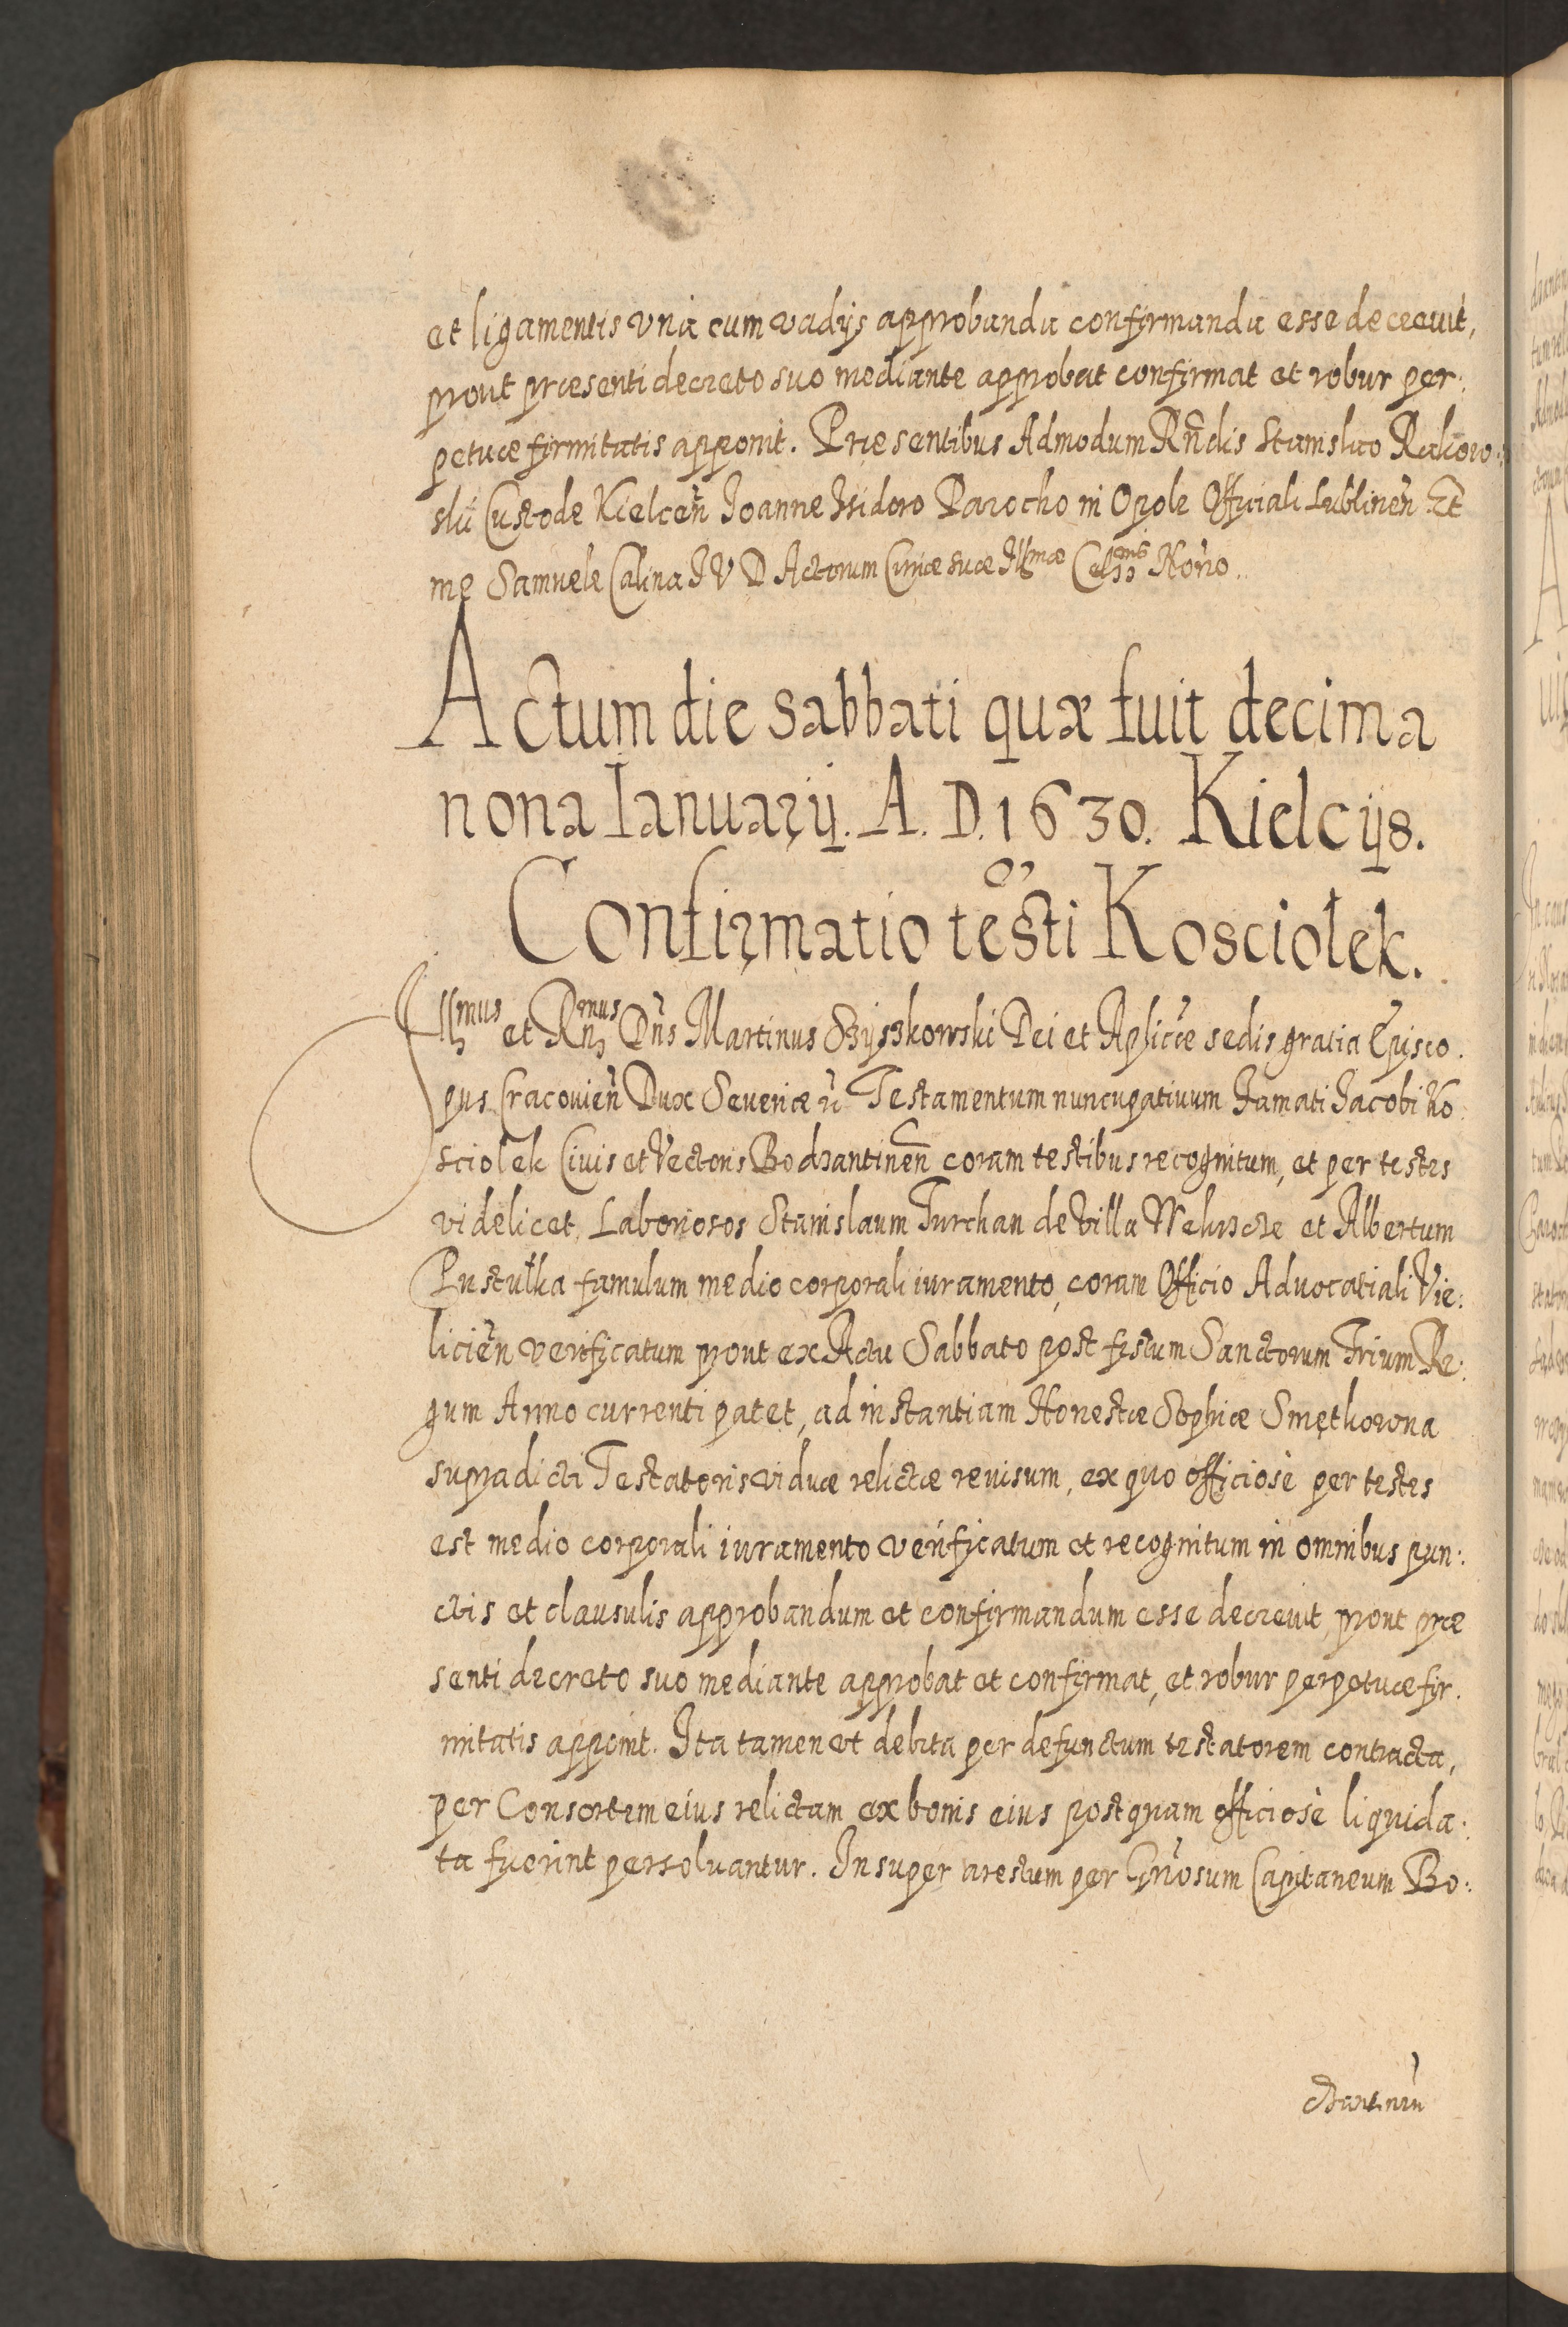 et ligamentis vnà cum vadijs approbanda confirmanda esse decreuit,
prout præsenti decreto suo mediante approbat confirmat et robur per:
petuæ firmitatis apponit. Præsentibus Admodum Rñdis Stanislao Rakow:
ski Custode Kielceñ Joanne Isidoro Parocho in Opole Officiali Lublineñ Et
me Samuele Calina I V D Actorum Curiæ suæ Illmæ Celsnis Noŕio.
Actum die Sabbati quæ fuit decima
nona Ianuarij. A. D. 1630. Kielcijs.
Confirmatio testi Kosciołek.
Illmus et Rnmus Dñs Martinus Szyszkowski Dei et Aplicæ sedis gratia Episco.
pus Cracovieñ Dux Severiæ Testamentum nuncupativum Famati Jacobi Ko
sciołek Civis et Vectoris Bodzantineñ coram testibus recognitum, et per testes
videlicet, Laboriosos Stanislaum Turchan de villa et Albertum
Pustułka famulum medio corporali iuramento, coram Officio Advocatiali Vie:
licieñ verificatum prout ex Actu Sabbato post festum Sanctorum Trium Re:
gum Anno currenti patet, ad instantiam Honestæ Sophiæ Smętkowna
supradicti Testatoris viduæ relictæ reuisum, ex quo officiosè per testes
est medio corporali iuramento verificatum et recognitum in omnibus pun:
ctis et clausulis approbandum et confirmandum esse decreuit, prout præ
senti decreto suo mediante approbat et confirmat, et robur perpetuæ fir.
mitatis apponit. Ita tamen ut debita per defunctum testatorem contracta,
per Consortem eius relictam ex bonis eius postquam officiosè liquida:
ta fuerint persoluantur. Insuper arestum per Gñosum Capitaneum Bo:
dzantineñ